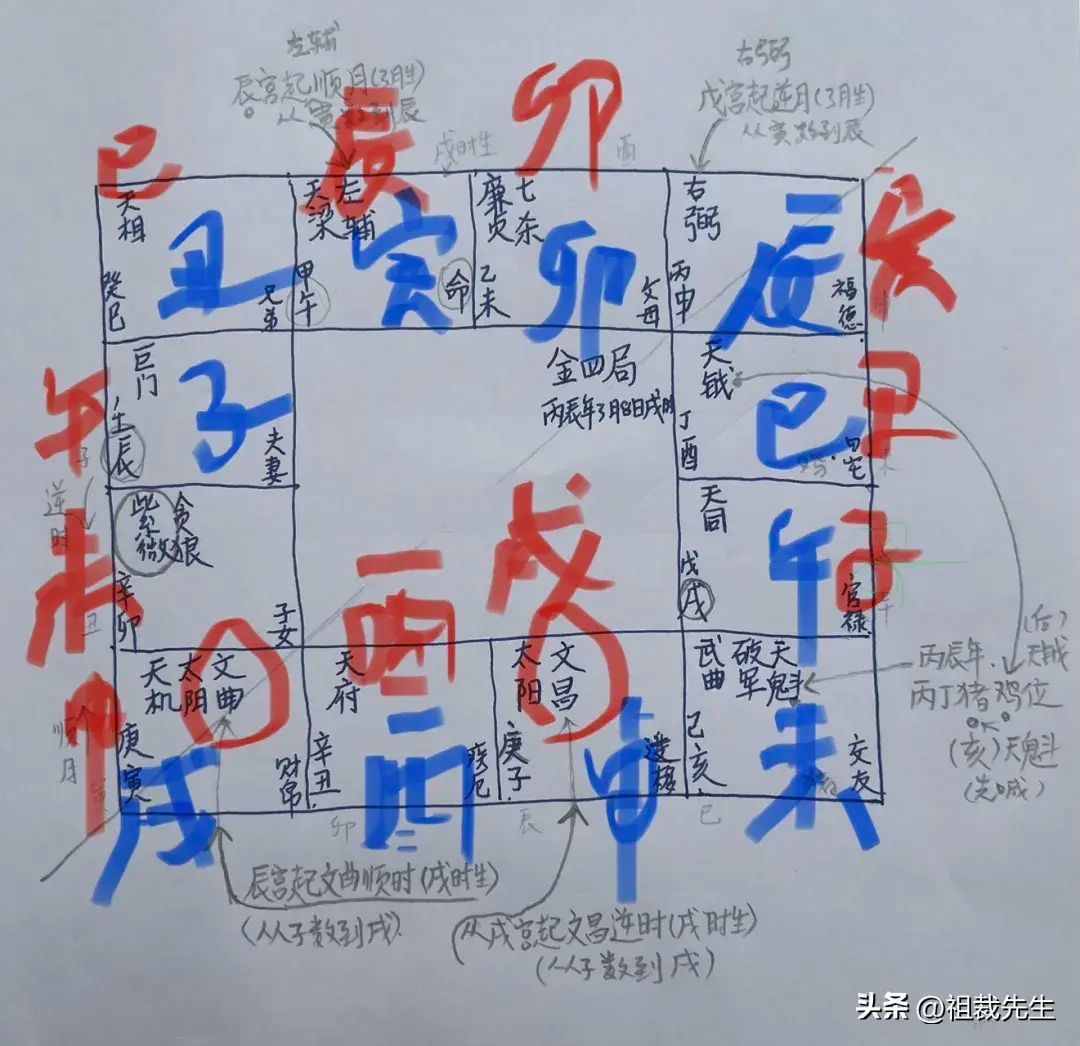 左辅
辰宫起顺月(3月生)
从寅数到辰
右弼
戌宫起逆月(3月生)
从寅数到辰
戌时生
酉
巳
辰
卯
亥
天相
丑
癸巳
兄弟
天梁
左辅
寅
甲午
命
廉贞
七杀
卯
乙未
父母
右弼
辰
丙申
福德
巨门
子
壬辰
夫妻
金四局
丙辰年3月8日戌时
天钺
巳
丁酉
田宅
丑
午
子
逆时
紫微
贪狼
辛卯
子女
未
丑
酉
戌
天同
午
戊戌
官禄
子
天机
太阳
文曲
庚寅
财帛
戌
申
顺月
天府
辛丑
疾厄
酉
太阳
文昌
庚子
迁移
申
武曲
破军
天魁
己亥
交友
未
丙辰年
丙丁猪鸡位
(后)
天钺
(亥)天魁
(先喊)
卯
辰
巳
辰宫起文曲顺时(戌时生)
(从子数到戌)
从戌宫起文昌逆时(戌时生)
(从子数到戌)
头条 @祖裁先生